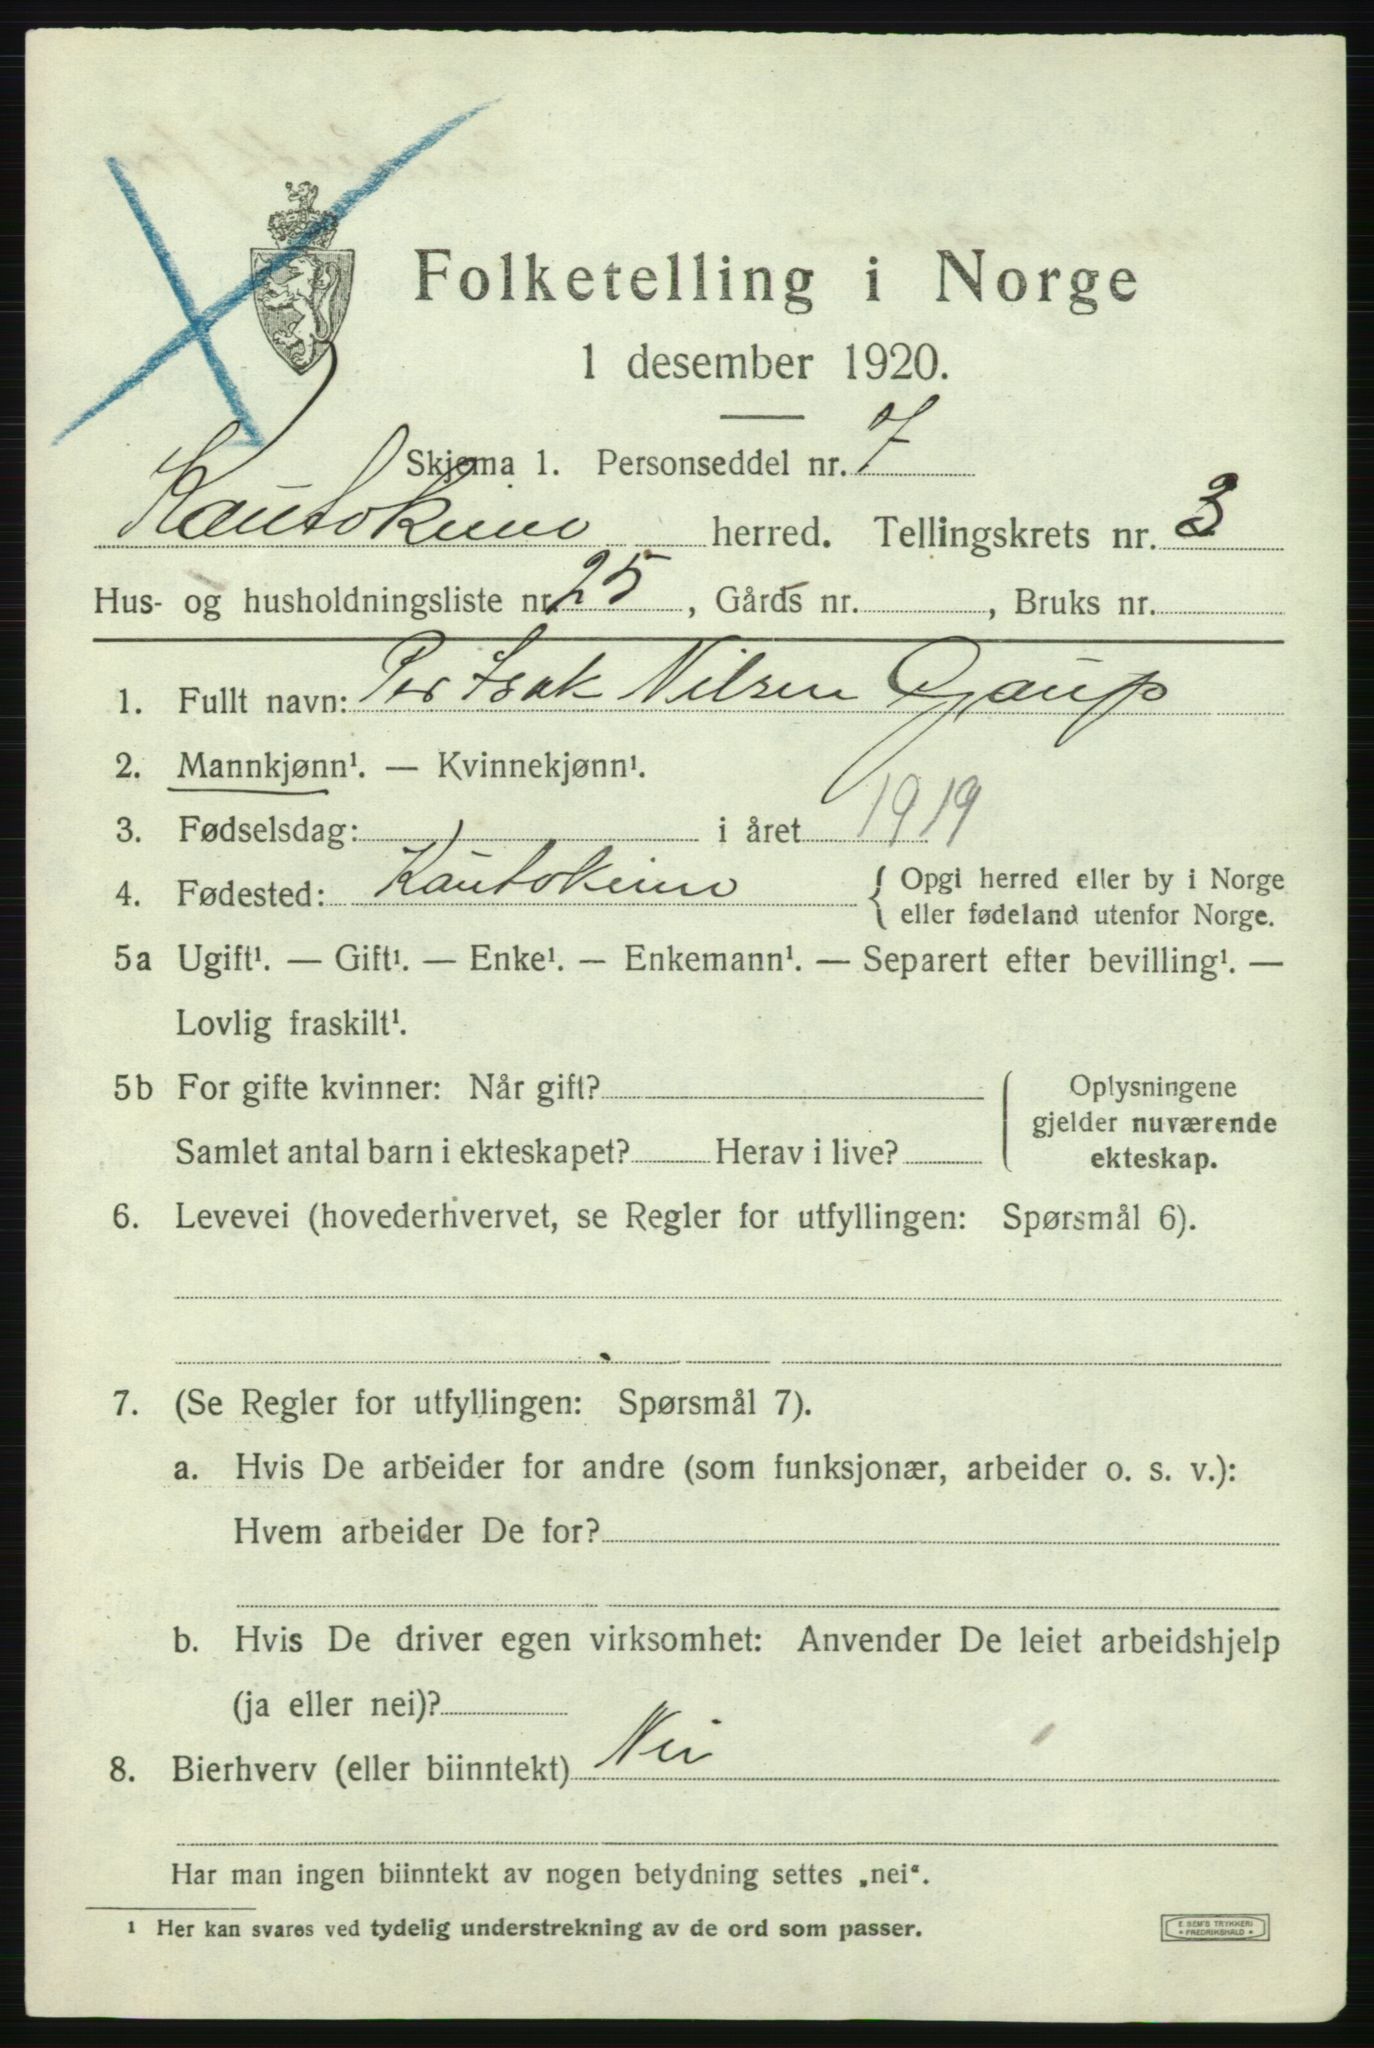 Folketelling i Norge
1 desember 1920.
Skjema 1. Personseddel nr. 7
Kautokeino herred. Tellingskrets nr. 3
Hus- og husholdningsliste nr. 25, Gårds nr. , Bruks nr.
1. Fullt navn: Per Isak Nilsen Gaup
2. Mannkjønn¹. — Kvinnekjønn¹.
3. Fødselsdag: i året 1919
4. Fødested: Kautokeino { Opgi herred eller by i Norge
eller fødeland utenfor Norge.
5a Ugift¹. — Gift¹. — Enke¹. — Enkemann¹. — Separert efter bevilling¹. —
Lovlig fraskilt¹.
5b For gifte kvinner: Når gift? Oplysningene
gjelder nuværende
Samlet antal barn i ekteskapet? Herav i live? ekteskap.
6. Levevei (hovederhvervet, se Regler for utfyllingen: Spørsmål 6).
7. (Se Regler for utfyllingen: Spørsmål 7).
a. Hvis De arbeider for andre (som funksjonær, arbeider o. s. v.):
Hvem arbeider De for?
b. Hvis De driver egen virksomhet: Anvender De leiet arbeidshjelp
(ja eller nei)?
8. Bierhverv (eller biinntekt) Nei
Har man ingen biinntekt av nogen betydning settes „nei“.
1 Her kan svares ved tydelig understrekning av de ord som passer.
E SEM'S TRYKKERI
* FREDRIKSHALD *